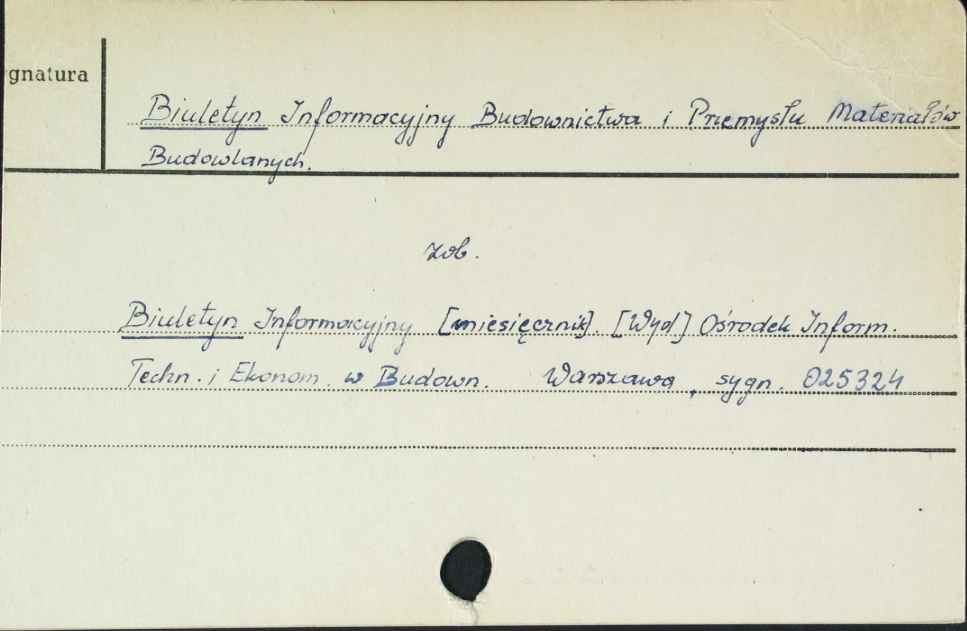 gnatura
Biuletyn Informacyjny Budownictwa i Przemysłu Materiałów
Budowlanych.
zob.
Biuletyn Informacyjny [miesięcznik]. [Wyd] Ośrodek Inform.
Techn. i Ekonom. w Budown. Warszawa, sygn. 025324